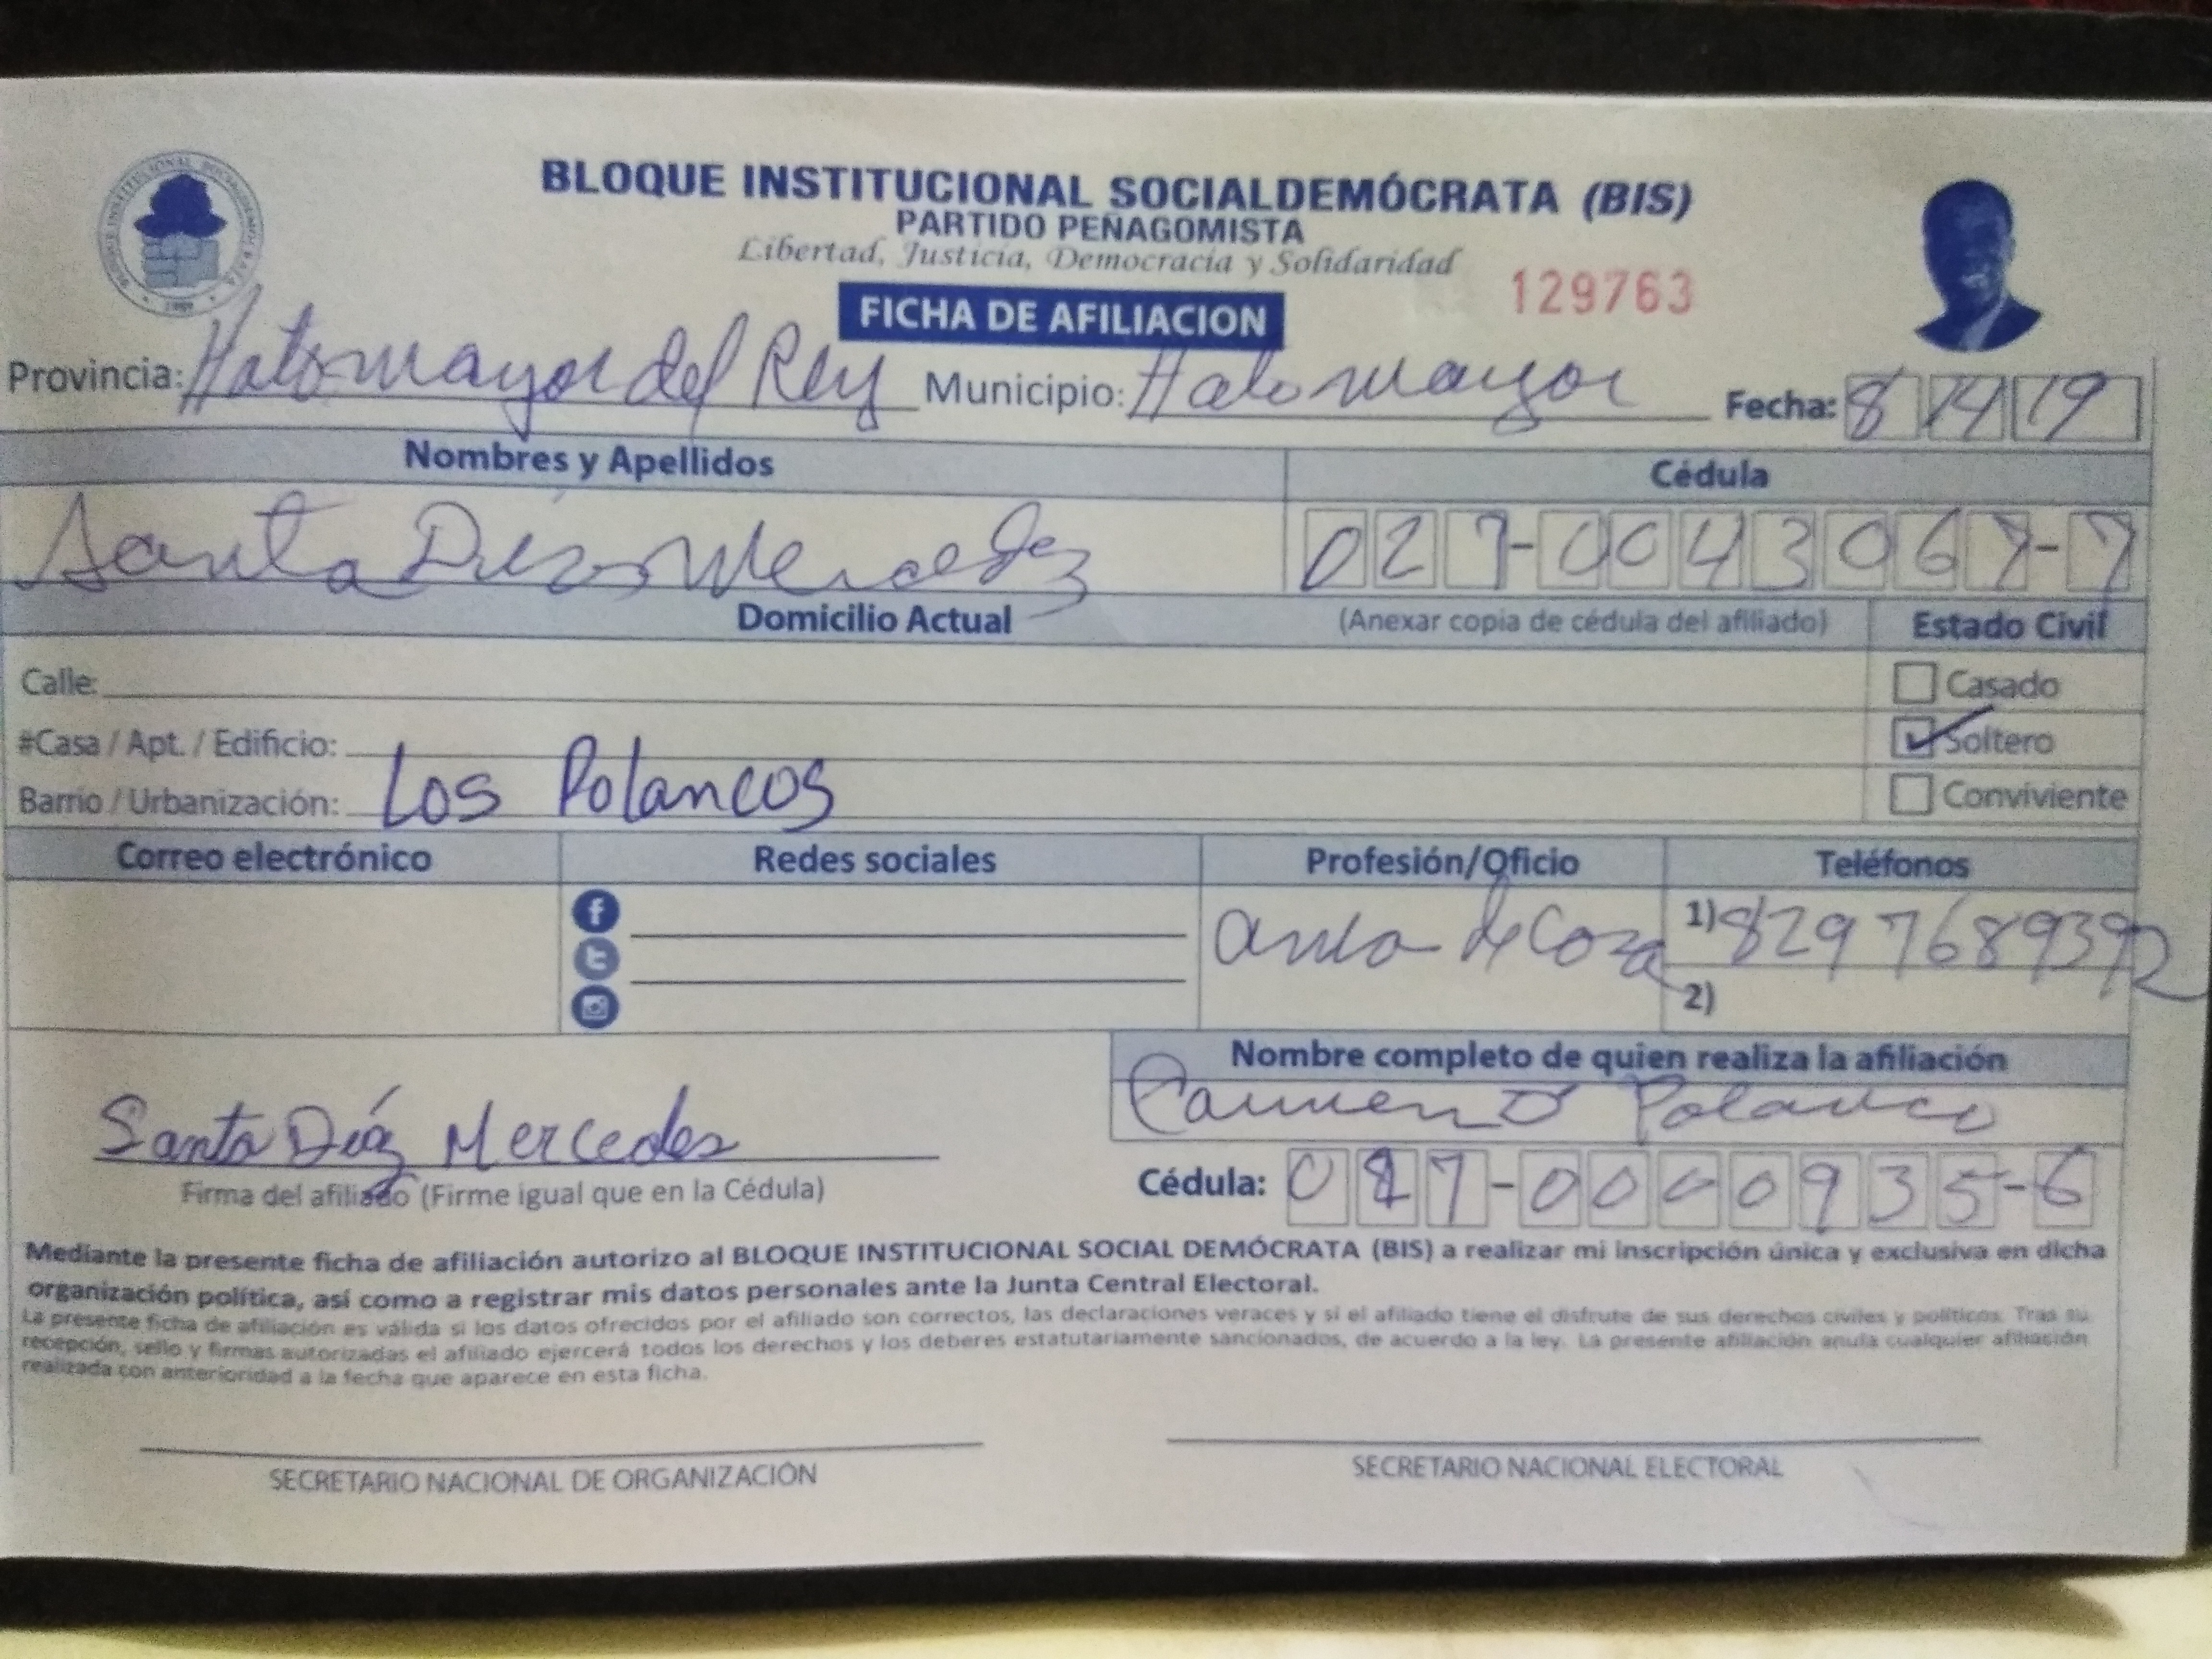 BLOQUE INSTITUCIONAL SOCIALDEMÓCRATA (BIS)
PARTIDO PEÑAGOMISTA
Libertad, Justicia, Democracia y Solidaridad
129763
FICHA DE AFILIACION
Provincia: Hato mayor del Rey Municipio: Hato mayor Fecha: 8 14 19
Nombres y Apellidos Cédula
Santa Mercedes 027-0043067-7
Domicilio Actual (Anexar copia de cédula del afiliado) Estado Civil
Calle: Casado
#Casa / Apt. / Edificio: Soltero
Barrio / Urbanización: Los Polancos Conviviente
Correo electrónico Redes sociales Profesión/Oficio Teléfonos
1) 8297689392
2)
Nombre completo de quien realiza la afiliación
Polanco
Santa Díaz Mercedes
Firma del afiliado (Firme igual que en la Cédula) Cédula: 027-0000935-6
Mediante la presente ficha de afiliación autorizo al BLOQUE INSTITUCIONAL SOCIAL DEMÓCRATA (BIS) a realizar mi inscripción única y exclusiva en dicha
organización política, así como a registrar mis datos personales ante la Junta Central Electoral.
La presente ficha de afiliación es válida si los datos ofrecidos por el afiliado son correctos, las declaraciones veraces y si el afiliado tiene el disfrute de sus derechos civiles y políticos. Tras su
recepción, sello y firmas autorizadas el afiliado ejercerá todos los derechos y los deberes estatutariamente sancionados, de acuerdo a la ley. La presente afiliación anula cualquier afiliación
realizada con anterioridad a la fecha que aparece en esta ficha.
SECRETARIO NACIONAL DE ORGANIZACIÓN SECRETARIO NACIONAL ELECTORAL